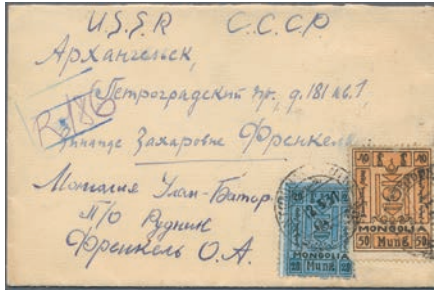 U.S.S.R С.С.С.Р.
Архангельск,
Петроградский пр. д.181 кв.1
R 3/186
Зинаиде Захаровне Френкель
Монголия Улан-Батор
П/О Рудник
Френкель О.А.
MONGOLIA
Mung
MONGOLIA
50 Mung 50